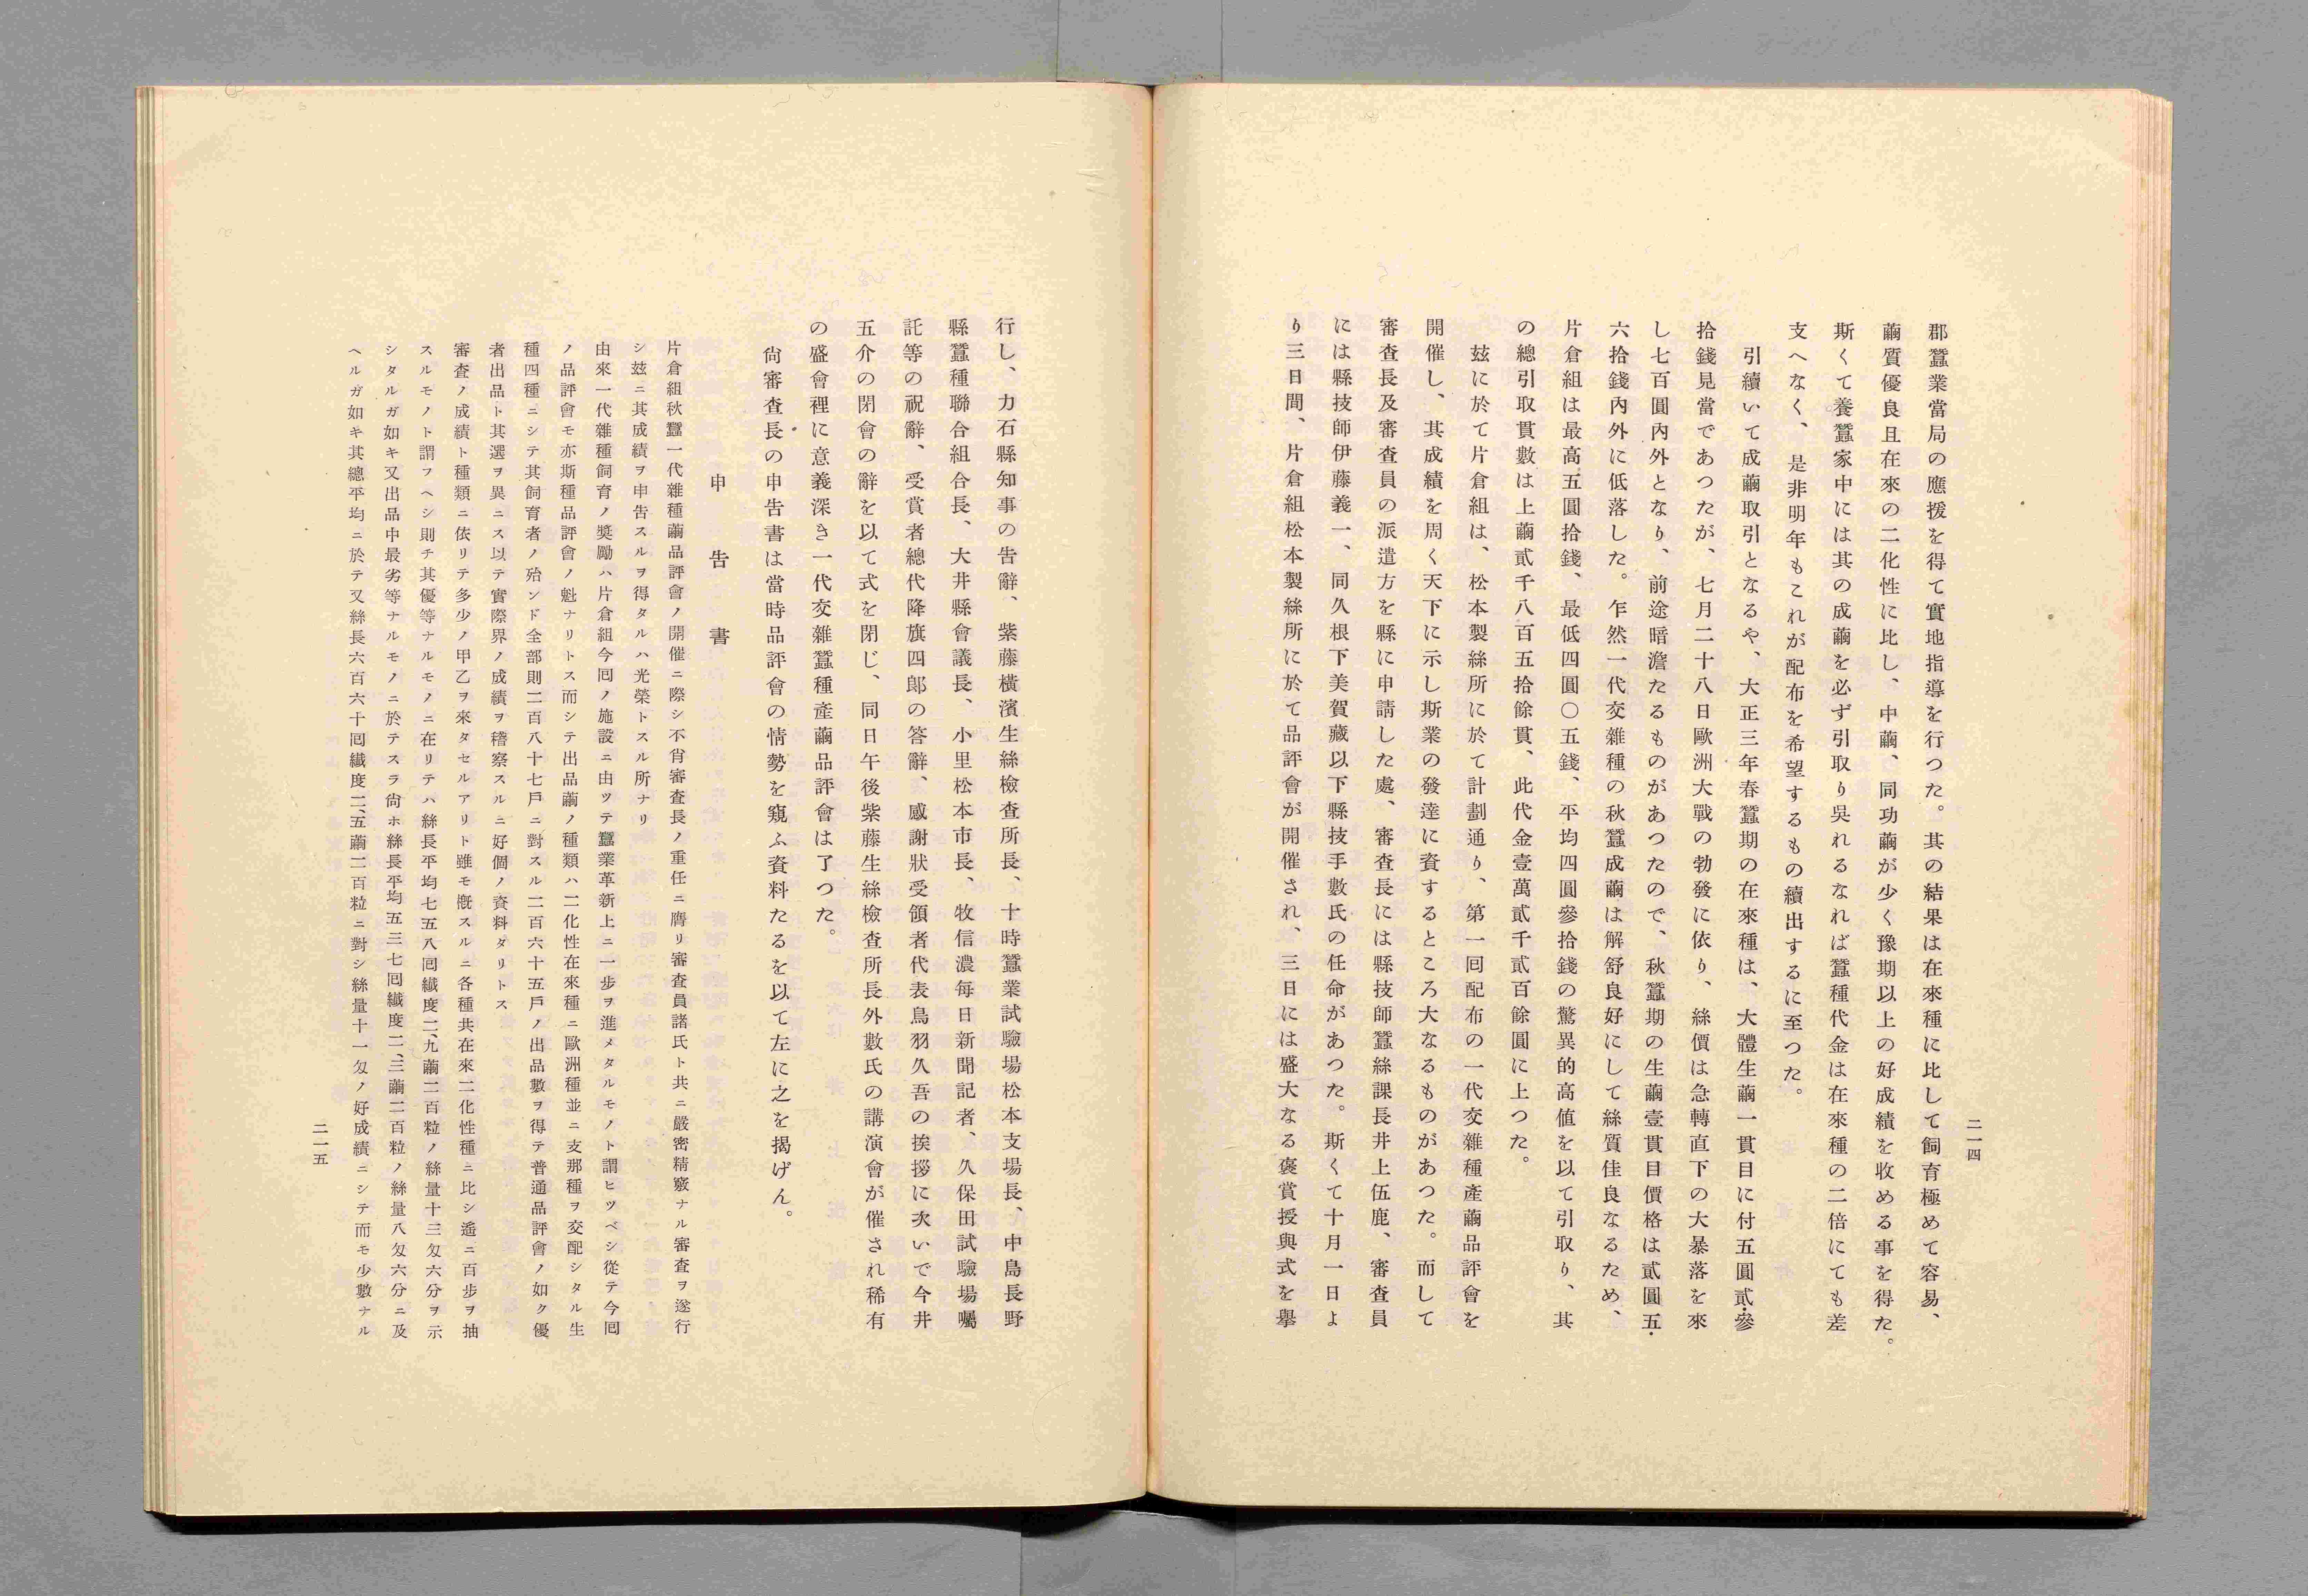 二一四
郡蠶業當局の應援を得て實地指導を行つた。其の結果は在來種に比して飼育極めて容易、
繭質優良且在來の二化性に比し、中繭、同功繭が少く豫期以上の好成績を收める事を得た。
斯くて養蠶家中には其の成繭を必ず引取り吳れるなれば蠶種代金は在來種の二倍にても差
支へなく、是非明年もこれが配布を希望するもの續出するに至つた。
引續いて成繭取引となるや、大正三年春蠶期の在來種は、大體生繭一貫目に付五圓貳・參
拾錢見當であつたが、七月二十八日歐洲大戰の勃發に依り、絲價は急轉直下の大暴落を來
し七百圓內外となり、前途暗澹たるものがあつたので、秋蠶期の生繭壹貫目價格は貳圓五・
六拾錢內外に低落した。乍然一代交雜種の秋蠶成繭は解舒良好にして絲質佳良なるため、
片倉組は最高五圓拾錢、最低四圓〇五錢、平均四圓參拾錢の驚異的高値を以て引取り、其
の總引取貫數は上繭貳千八百五拾餘貫、此代金壹萬貳千貳百餘圓に上つた。
玆に於て片倉組は、松本製絲所に於て計劃通り、第一囘配布の一代交雜種產繭品評會を
開催し、其成績を周く天下に示し斯業の發達に資するところ大なるものがあつた。而して
審査長及審査員の派遣方を縣に申請した處、審査長には縣技師蠶絲課長井上伍鹿、審査員
には縣技師伊藤義一、同久根下美賀藏以下縣技手數氏の任命があつた。斯くて十月一日よ
り三日間、片倉組松本製絲所に於て品評會が開催され、三日には盛大なる褒賞授與式を擧
行し、力石縣知事の告辭、紫藤橫濱生絲檢查所長、十時蠶業試驗場松本支場長、中島長野
縣蠶種聯合組合長、大井縣會議長、小里松本市長、牧信濃每日新聞記者、久保田試驗場囑
託等の祝辭、受賞者總代降旗四郞の答辭、感謝狀受領者代表鳥羽久吾の挨拶に次いで今井
五介の閉會の辭を以て式を閉じ、同日午後紫藤生絲檢查所長外數氏の講演會が催され稀有
の盛會裡に意義深き一代交雜蠶種產繭品評會は了つた。
尙審查長の申告書は當時品評會の情勢を窺ふ資料たるを以て左に之を揭げん。
申告書
片倉組秋蠶一代雜種繭品評會ノ開催ニ際シ不肖審查長ノ重任ニ膺リ審查員諸氏ト共ニ嚴密精竅ナル審査ヲ遂行
シ玆ニ其成績ヲ申告スルヲ得タルハ光榮トスル所ナリ
由來一代雜種飼育ノ奬勵ハ片倉組今囘ノ施設ニ由ツテ蠶業革新上ニ一步ヲ進メタルモノト謂ヒツベシ從テ今囘
ノ品評會モ亦斯種品評會ノ魁ナリトス而シテ出品繭ノ種類ハ二化性在來種ニ歐洲種並ニ支那種ヲ交配シタル生
種四種ニシテ其飼育者ノ殆ンド全部則二百八十七戶ニ對スル二百六十五戶ノ出品數ヲ得テ普通品評會ノ如ク優
者出品ト其選ヲ異ニス以テ實際界ノ成績ヲ稽察スルニ好個ノ資料タリトス
審査ノ成績ト種類ニ依リテ多少ノ甲乙ヲ來タセルアリト雖モ槪スルニ各種共在來二化性種ニ比シ遙ニ百步ヲ抽
スルモノト謂フヘシ則チ其優等ナルモノニ在リテハ絲長平均七五八囘纎度二、九繭二百粒ノ絲量十三匁六分ヲ示
シタルガ如キ又出品中最劣等ナルモノニ於テスラ尙ホ絲長平均五三七囘纎度二、三繭二百粒ノ絲量八匁六分ニ及
ヘルガ如キ其總平均ニ於テ又絲長六百六十囘纎度二、五繭二百粒ニ對シ絲量十一匁ノ好成績ニシテ而モ少數ナル
二一五